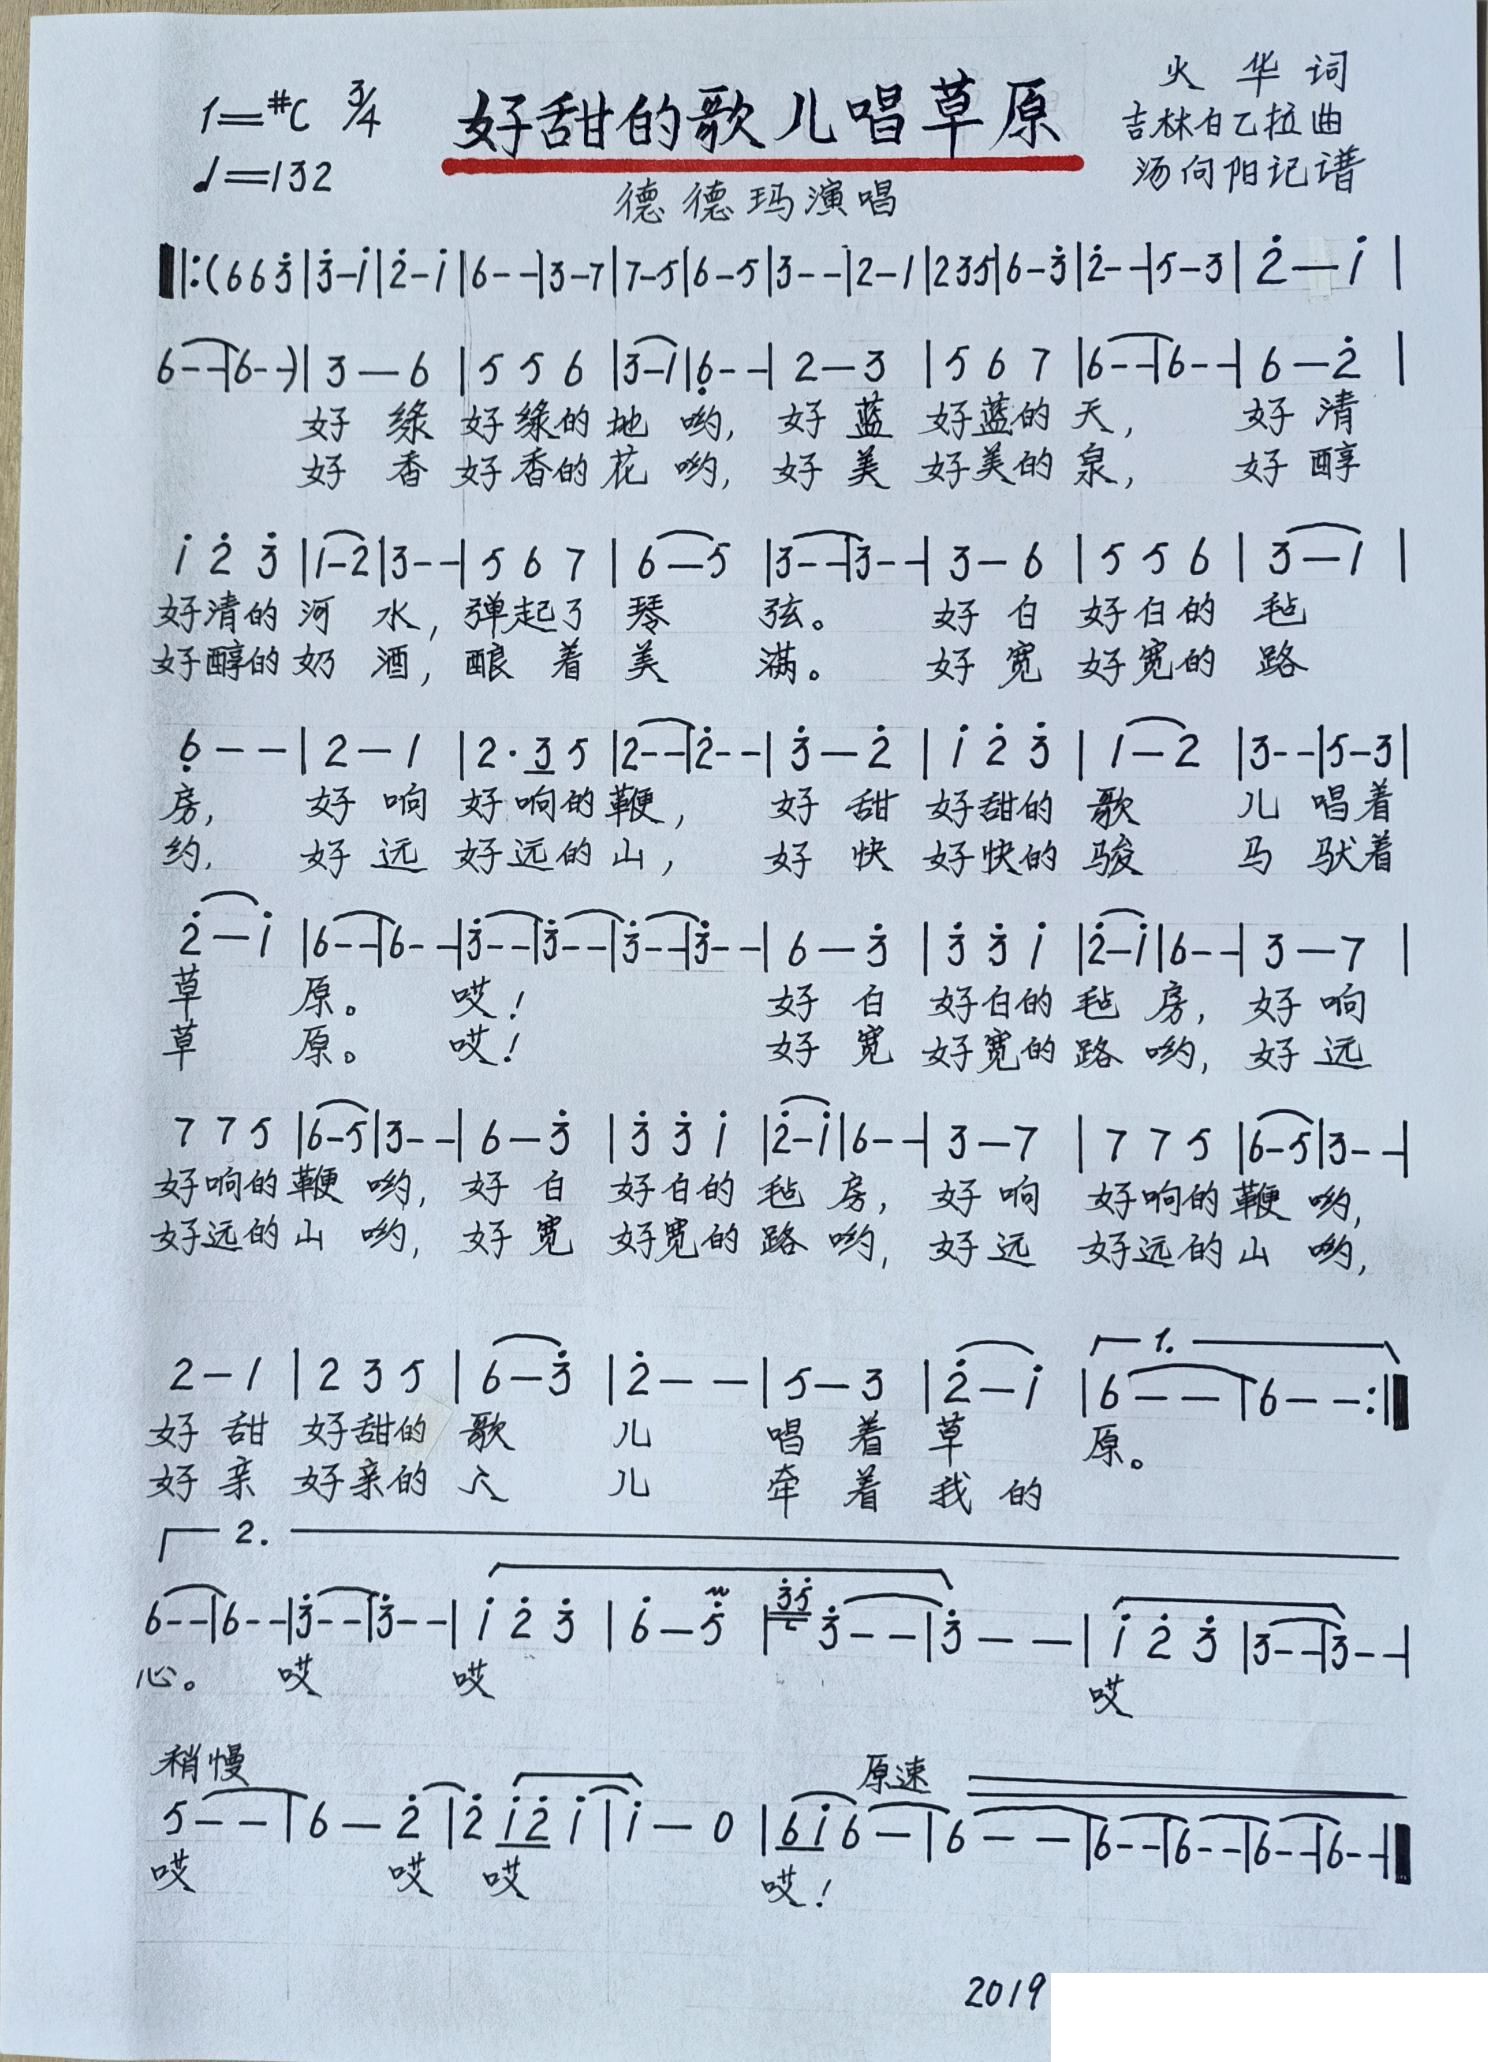 1=#C 3/4 好甜的歌儿唱草原 火华词
♩=132 吉林白乙拉曲
德德玛演唱 汤向阳记谱
‖:(6 6 3̇|3̇-1̇|2̇-1̇|6--|3-7|7-5|6-5|3--|2-1|2 3 5|6-3̇|2̇--|5-3|2̇-1̇|
6--|6--)|3-6|5 5 6|3-1|6̣--|2-3|5 6 7|6--|6--|6-2̇|
好 绿 好绿的 地 哟, 好 蓝 好蓝的 天, 好 清
好 香 好香的 花 哟, 好 美 好美的 泉, 好 醇
1̇ 2̇ 3̇|1-2|3--|5 6 7|6-5|3--|3--|3-6|5 5 6|3-1|
好清的 河 水, 弹起了 琴 弦。 好 白 好白的 毡
好醇的 奶 酒, 酿 着 美 满。 好 宽 好宽的 路
6̣--|2-1|2·3 5|2--|2̇--|3̇-2̇|1̇ 2̇ 3̇|1-2|3--|5-3|
房, 好 响 好响的 鞭, 好 甜 好甜的 歌 儿 唱着
约, 好 远 好远的 山, 好 快 好快的 骏 马 驮着
2̇-1̇|6--|6--|3̇--|3̇--|3̇--|3̇--|6-3̇|3̇ 3̇ 1̇|2̇-1̇|6--|3-7|
草 原。 哎! 好 白 好白的 毡 房, 好 响
草 原。 哎! 好 宽 好宽的 路 哟, 好 远
7 7 5|6-5|3--|6-3̇|3̇ 3̇ 1̇|2̇-1̇|6--|3-7|7 7 5|6-5|3--|
好响的 鞭 哟, 好 白 好白的 毡 房, 好 响 好响的 鞭 哟,
好远的 山 哟, 好 宽 好宽的 路 哟, 好 远 好远的 山 哟,
1.
2-1|2 3 5|6-3̇|2̇--|5-3|2̇-1̇|6--|6--:‖
好 甜 好甜的 歌 儿 唱 着 草 原。
好 亲 好亲的 人 儿 牵 着 我 的
2.
6--|6--|3̇--|3̇--|1̇ 2̇ 3̇|6̇-5̇|3̇5̇ 3̇--|3̇--|1̇ 2̇ 3̇|3--|3--|
心。 哎 哎 哎
稍慢 原速
5--|6-2̇|2̇ 1̇2̇ 1̇|1̇-0|61̇ 6-|6--|6--|6--|6--|6--|
哎 哎 哎 哎!
2019